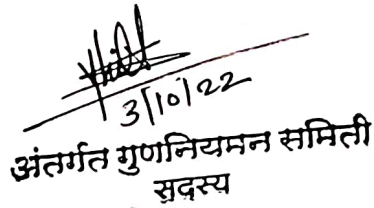 3/10/22
अंतर्गत गुणनियमन समिती
सदस्य